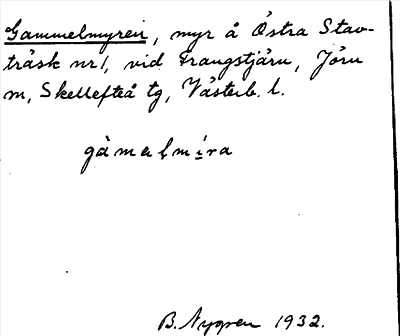 Gammelmyren, myr å Östra Stav-
träsk nr 1, vid Trangstjärn, Jörn
m, Skellefteå tg, Västerb. l.
gàmalmíra
B. Nygren 1932.